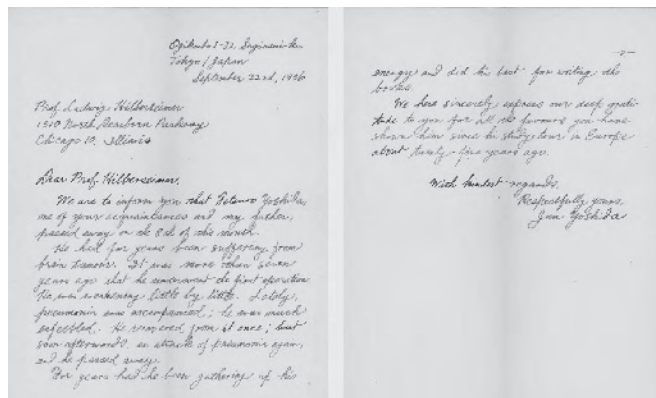 Ogikubo 1-72, Suginami-ku
Tokyo / Japan
September 22nd, 1956
Prof. Ludwig Hilberseimer
1500 North Dearborn Parkway
Chicago 10, Illinois
Dear Prof. Hilberseimer,
We are to inform you that Tetsuro Yoshida,
one of your acquaintances and my father,
passed away on the 8th of this month.
He had for years been suffering from
brain tumour. It was more than seven
years ago that he underwent the first operation.
He was weakening little by little. Lately,
pneumonia was accompanied; he was much
enfeebled. He recovered from it once; but
soon afterwards, an attack of pneumonia again,
and he passed away.
For years had he been gathering up his
-2-
energy and did his best for writing the
books.
We here sincerely express our deep grati-
tude to you for all the favours you have
shown him since his study tour in Europe
about twenty-five years ago.
With kindest regards,
Respectfully yours,
Jun Yoshida